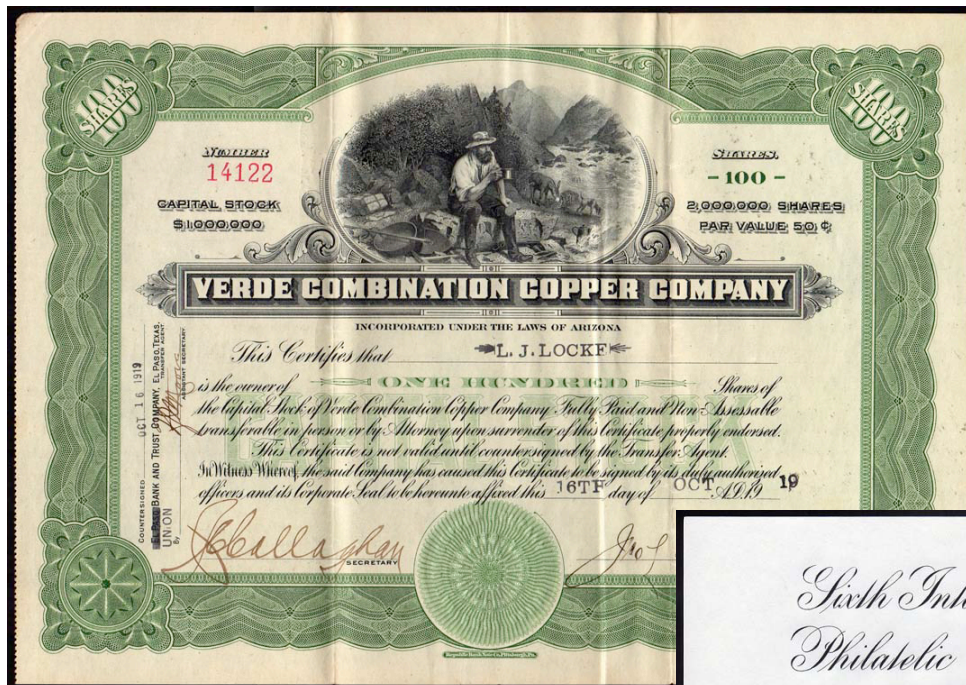 100 SHARES
100 SHARES
NUMBER
14122
CAPITAL STOCK
$1,000,000
SHARES.
- 100 -
2,000,000 SHARES
PAR VALUE 50 ¢
VERDE COMBINATION COPPER COMPANY
INCORPORATED UNDER THE LAWS OF ARIZONA
This Certifies that L. J. LOCKE
is the owner of ONE HUNDRED Shares of
the Capital Stock of Verde Combination Copper Company Fully Paid and Non-Assessable
transferable in person or by Attorney upon surrender of this Certificate properly endorsed.
This Certificate is not valid until countersigned by the Transfer Agent.
In Witness Whereof, the said Company has caused this Certificate to be signed by its duly authorized
officers and its Corporate Seal to be hereunto affixed this 16TH day of OCT A.D. 19 19
COUNTERSIGNED OCT 16 1919
EL PASO BANK AND TRUST COMPANY, EL PASO, TEXAS,
TRANSFER AGENT
UNION
By
ASSISTANT SECRETARY
Callaghan
SECRETARY
Jno
Sixth Inte
Philatelic